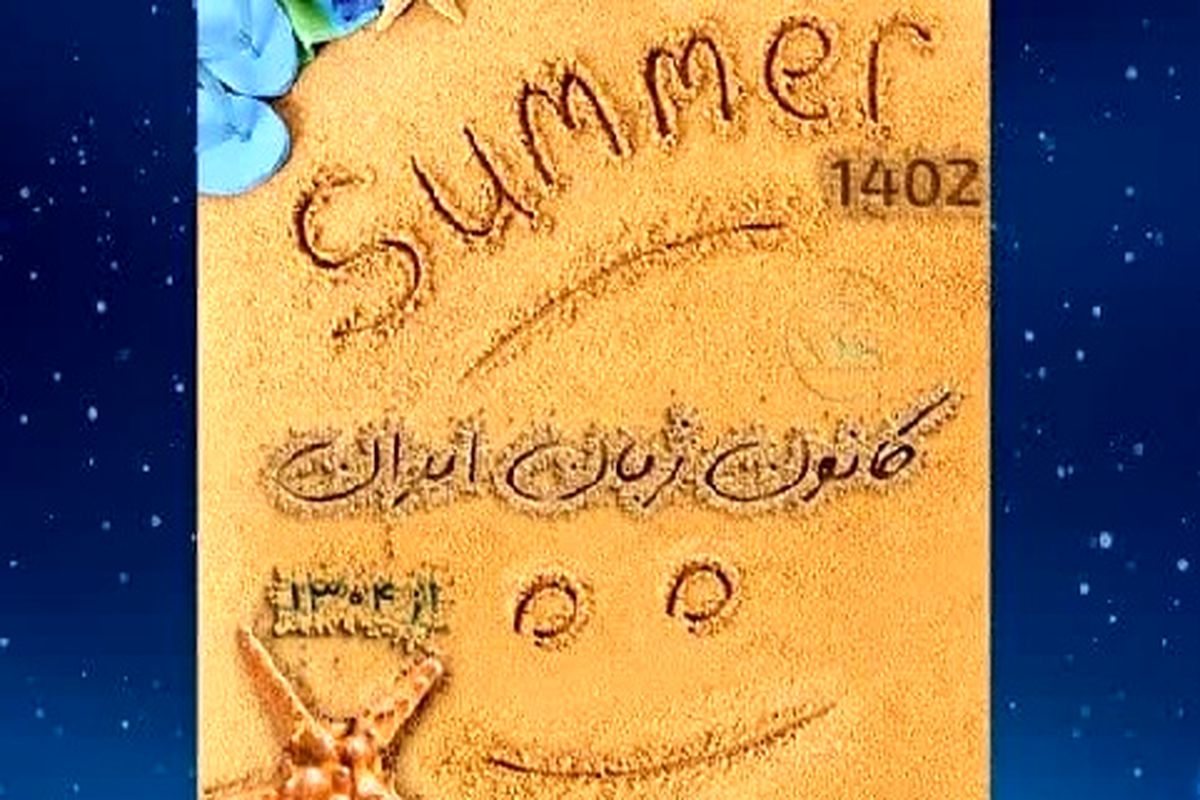 Summer
1402
کانون زبان ایران
از ۱۳۰۴